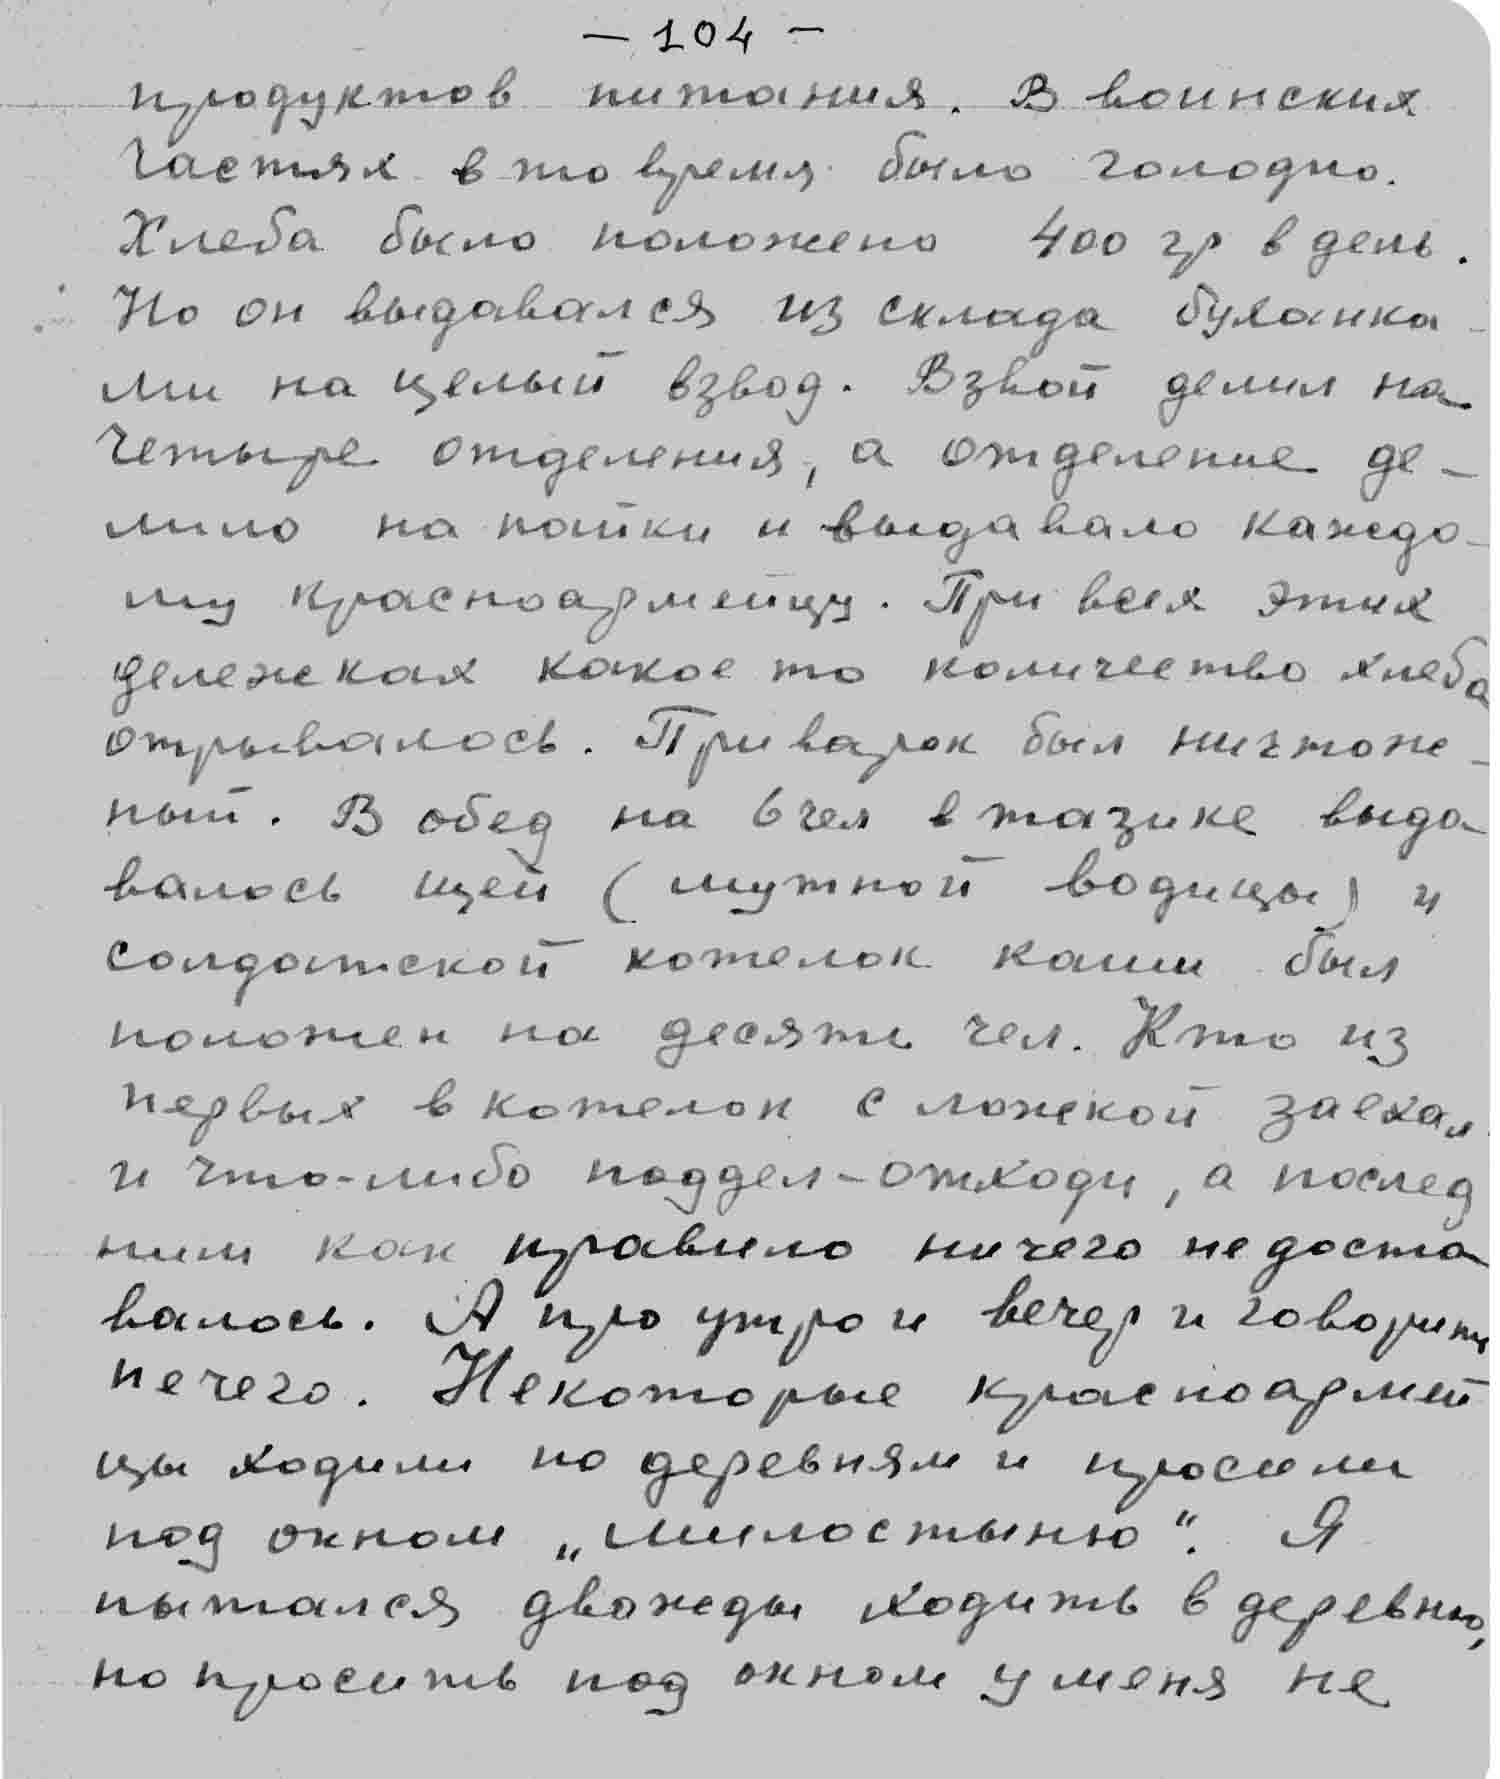 — 104 —
продуктов питания. В воинских
частях в то время было голодно.
Хлеба было положено 400 гр в день.
Но он выдавался из склада буханка-
ми на целый взвод. Взвой делил на
четыре отделения, а отделение де-
лило на пайки и выдавало каждо-
му красноармейцу. При всех этих
дележках какое то количество хлеба
отрывалось. Приварок был ничтож-
ный. В обед на 6 чел в тазике выда
валось щей (мутной водицы) и
солдатской котелок каши был
положен на десять чел. Кто из
первых в котелок с ложкой заехал
и что-либо поддел - отходи, а послед
ним как правило ничего не доста
валось. А про утро и вечер и говорить
нечего. Некоторые красноармей
цы ходили по деревням и просили
под окном „милостыню“. Я
пытался дважды ходить в деревню,
но просить под окном у меня не